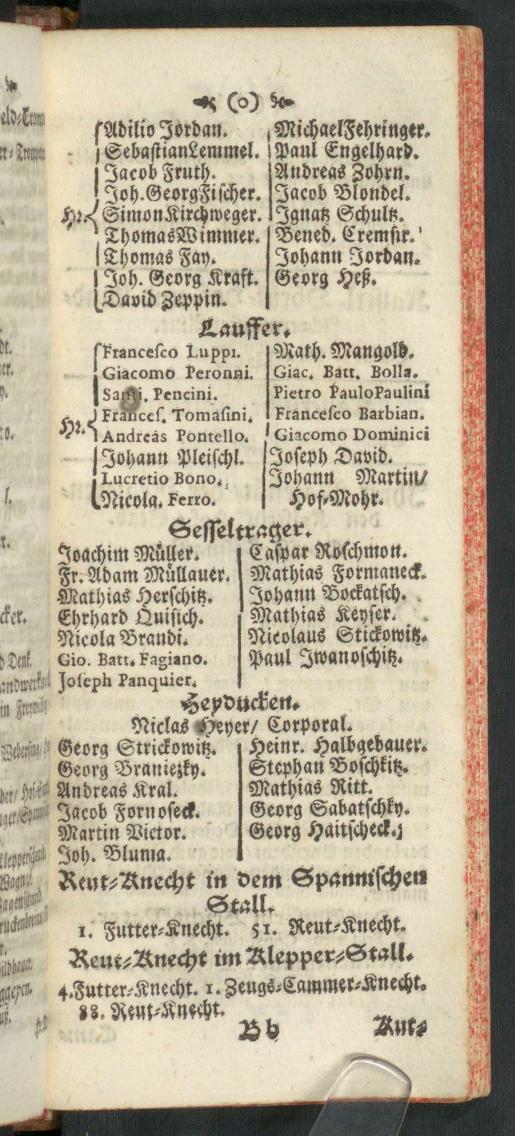 (0)
Adilio Jordan.
Sebastian Lemmel.
Jacob Fruth.
Joh. Georg Fischer.
Hr. Simon Kirchweger.
Thomas Wimmer.
Thomas Fay.
Joh. Georg Kraft.
David Zeppin.
Michael Fehringer.
Paul Engelhard.
Andreas Zohrn.
Jacob Blondel.
Ignatz Schultz.
Bened. Cremsir.
Johann Jordan.
Georg Heß.
Lauffer.
Francesco Luppi.
Giacomo Peronni.
Santi. Pencini.
Hr. Francesc. Tomasini.
Andreäs Pontello.
Johann Pleischl.
Lucretio Bono.
Nicola. Ferro.
Math. Mangold.
Giac. Batt. Bolla.
Pietro Paulo Paulini
Francesco Barbian.
Giacomo Dominici
Joseph David.
Johann Martin/
Hof-Mohr.
Sesseltrager.
Joachim Müller.
Fr. Adam Müllauer.
Mathias Herschitz.
Ehrhard Quisich.
Nicola Brandi.
Gio. Batt. Fagiano.
Joseph Panquier.
Caspar Röschmon.
Mathias Formaneck.
Johann Bockatsch.
Mathias Keyser.
Nicolaus Stickowitz.
Paul Iwanoschitz.
Heyducken.
Niclas Heyer/ Corporal.
Georg Strickowitz.
Georg Braniezky.
Andreas Kral.
Jacob Fornoseck.
Martin Victor.
Joh. Bluma.
Heinr. Halbgebauer.
Stephan Boschkitz.
Mathias Ritt.
Georg Sabatschky.
Georg Haitscheck.
Reut-Knecht in dem Spannischen
Stall.
1. Futter-Knecht. 51. Reut-Knecht.
Reut-Knecht im Klepper-Stall.
4. Futter-Knecht. 1. Zeugs-Cammer-Knecht.
88. Reut-Knecht.
Bb Kut-